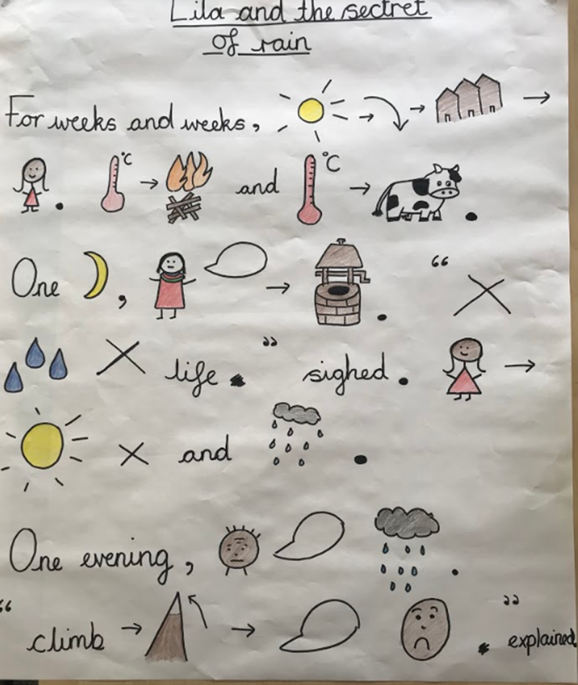 Lila and the sectret
of rain
For weeks and weeks,
°C and °C .
One , . “
life . ” sighed .
and .
One evening , .
“ climb ” . explained